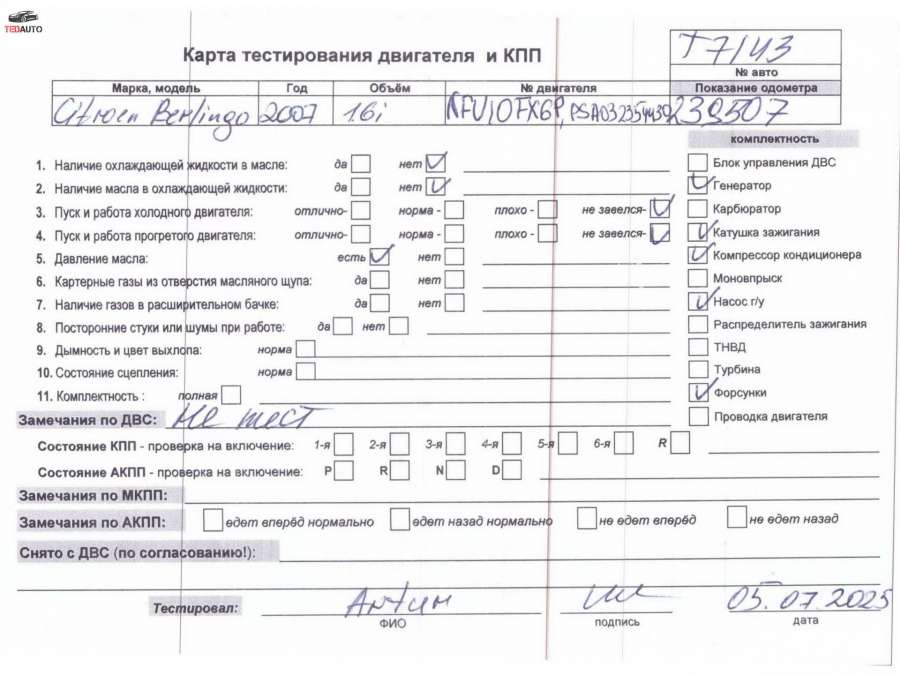 TEDAUTO
Карта тестирования двигателя и КПП
T7/43
№ авто
Марка, модель Год Объём № двигателя Показание одометра
Citroen Berlingo 2007 1.6i NFU10FX6P, PSA03235 239507
комплектность
1. Наличие охлаждающей жидкости в масле: да нет Блок управления ДВС
2. Наличие масла в охлаждающей жидкости: да нет Генератор
3. Пуск и работа холодного двигателя: отлично- норма - плохо - не завелся- Карбюратор
4. Пуск и работа прогретого двигателя: отлично- норма - плохо - не завелся- Катушка зажигания
5. Давление масла: есть нет Компрессор кондиционера
6. Картерные газы из отверстия масляного щупа: да нет Моновпрыск
7. Наличие газов в расширительном бачке: да нет Насос г/у
8. Посторонние стуки или шумы при работе: да нет Распределитель зажигания
9. Дымность и цвет выхлопа: норма ТНВД
10. Состояние сцепления: норма Турбина
11. Комплектность : полная Форсунки
Замечания по ДВС: Не тест Проводка двигателя
Состояние КПП - проверка на включение: 1-я 2-я 3-я 4-я 5-я 6-я R
Состояние АКПП - проверка на включение: P R N D
Замечания по МКПП:
Замечания по АКПП: едет вперёд нормально едет назад нормально не едет вперёд не едет назад
Снято с ДВС (по согласованию!):
Тестировал: 05.07.2025
ФИО подпись дата